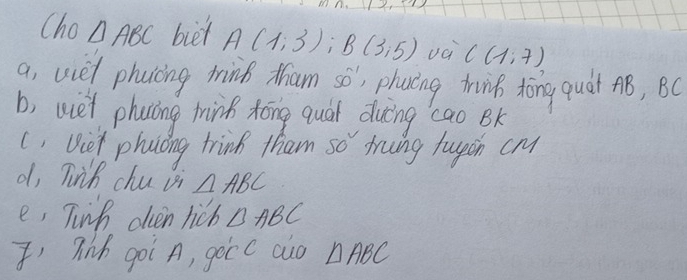 Cho Δ ABC biết A (1;3); B (3;5) và C (1;7)
a, viết phương trình tham số, phương trình tổng quát AB, BC
b, viết phương trình tổng quát đường cao BK
c, viết phương trình tham số trung tuyến CM
d, Tính chu vi Δ ABC
e, Tính diện tích Δ ABC
f, Tính góc A, góc C của Δ ABC